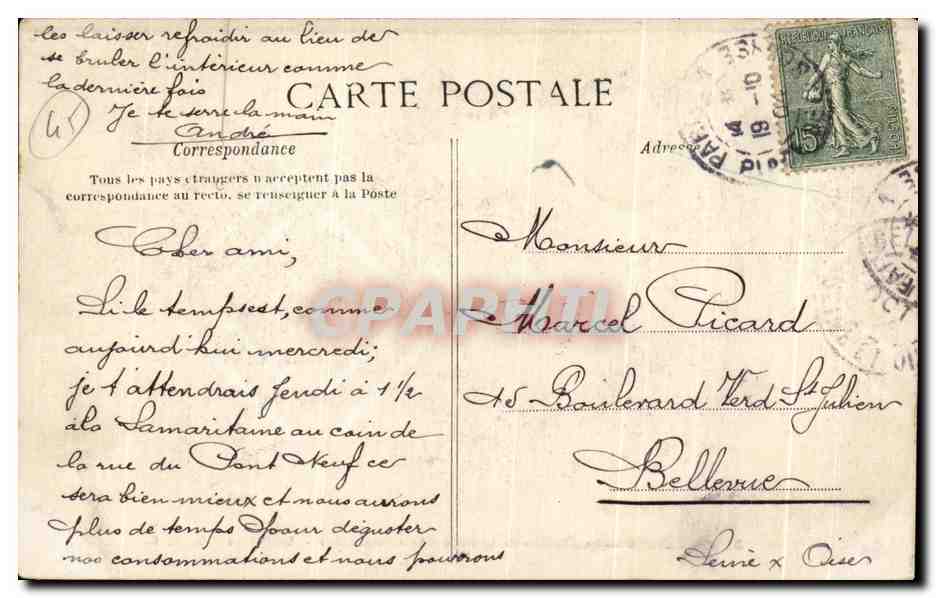 les laisser refroidir au lieu de
se bruler l'intérieur comme
la dernière fois
Je te serre la main
André
45
CARTE POSTALE
Correspondance
Adresse
Tous les pays étrangers n'acceptent pas la
correspondance au recto, se renseigner à la Poste
REPUBLIQUE FRANÇAISE
15
POSTES
Cher ami,
Si le temps est, comme
aujourd'hui mercredi;
je t'attendrais Jeudi à 1 1/2
à la Samaritaine au coin de
la rue du Pont Neuf ce
sera bien mieux et nous aurons
plus de temps pour déguster
nos consommations et nous pourrons
Monsieur
Marcel Picard
45 Boulevard Verd St Julien
Bellevue
Seine x Oise
CPAPHIL